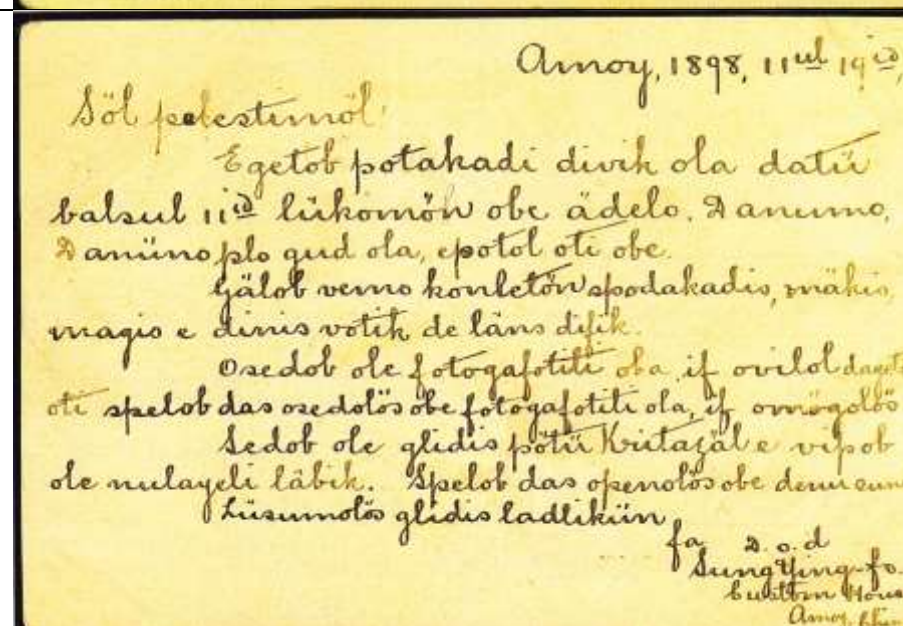 Amoy, 1898, 11ul 19id,
Söl pelestimöl!
Egetob potakadi divik ola datü
balsul 11id lükömön obe ädelo. Danumo,
Danüno plo gud ola, epotol oti obe.
Gälob vemo konletön spodakadis, mäkis,
magis e dinis votik de läns difik.
Osedob ole fotogafotili oba if ovilol dagetö
oti spelob das osedolös obe fotogafotili ola, if omögolös
Sedob ole glidis pötü Kritazäl e vipob
ole nulayeli läbik. Spelob das openolös obe denu
Lüsumolös glidis ladlikün
fa D. o. d
Sung Ying-fo.
Custom House
Amoy,